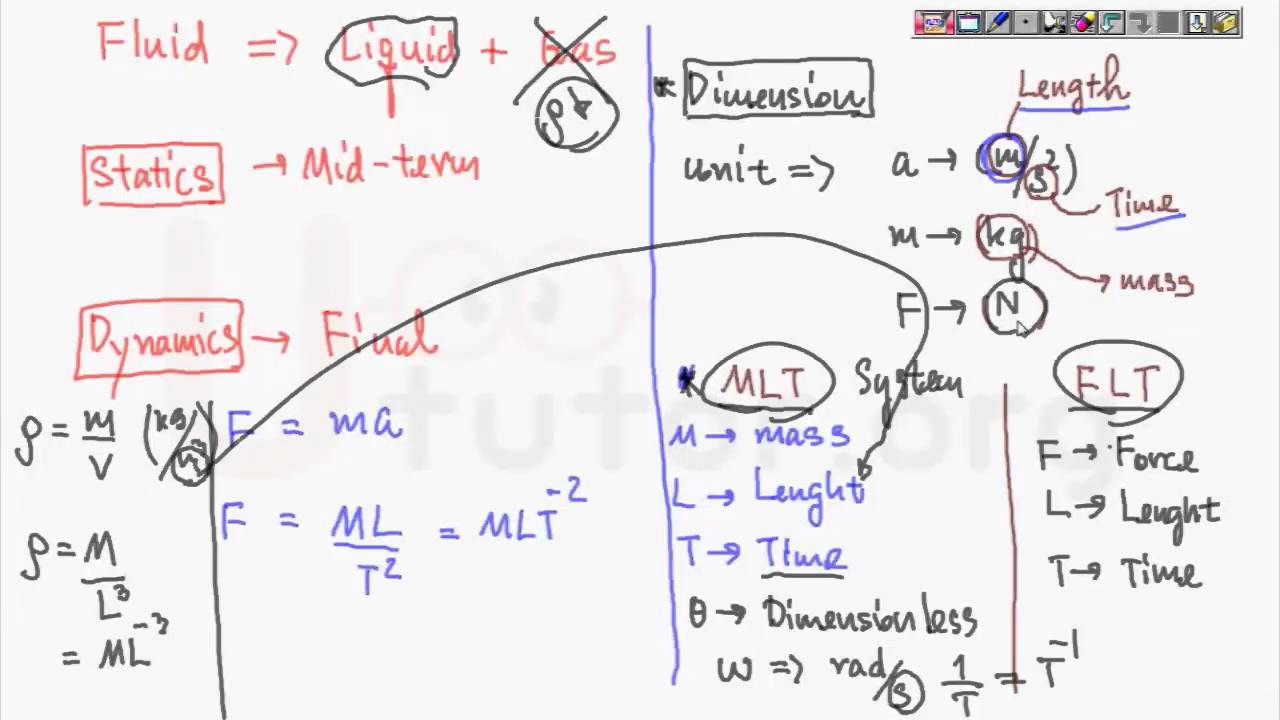 Fluid => Liquid + Gas
ρ
Statics → Mid-term
Dynamics → Final
ρ = m/V (kg/m³)
ρ = M/L³
= ML⁻³
F = ma
F = ML/T² = MLT⁻²
* Dimension
unit => a → (m/s²)
Length
Time
m → kg
mass
F → N
* MLT System
M → mass
L → Lenght
T → Time
θ → Dimensionless
ω => rad/s 1/T = T⁻¹
FLT
F → Force
L → Lenght
T → Time
tutor.org